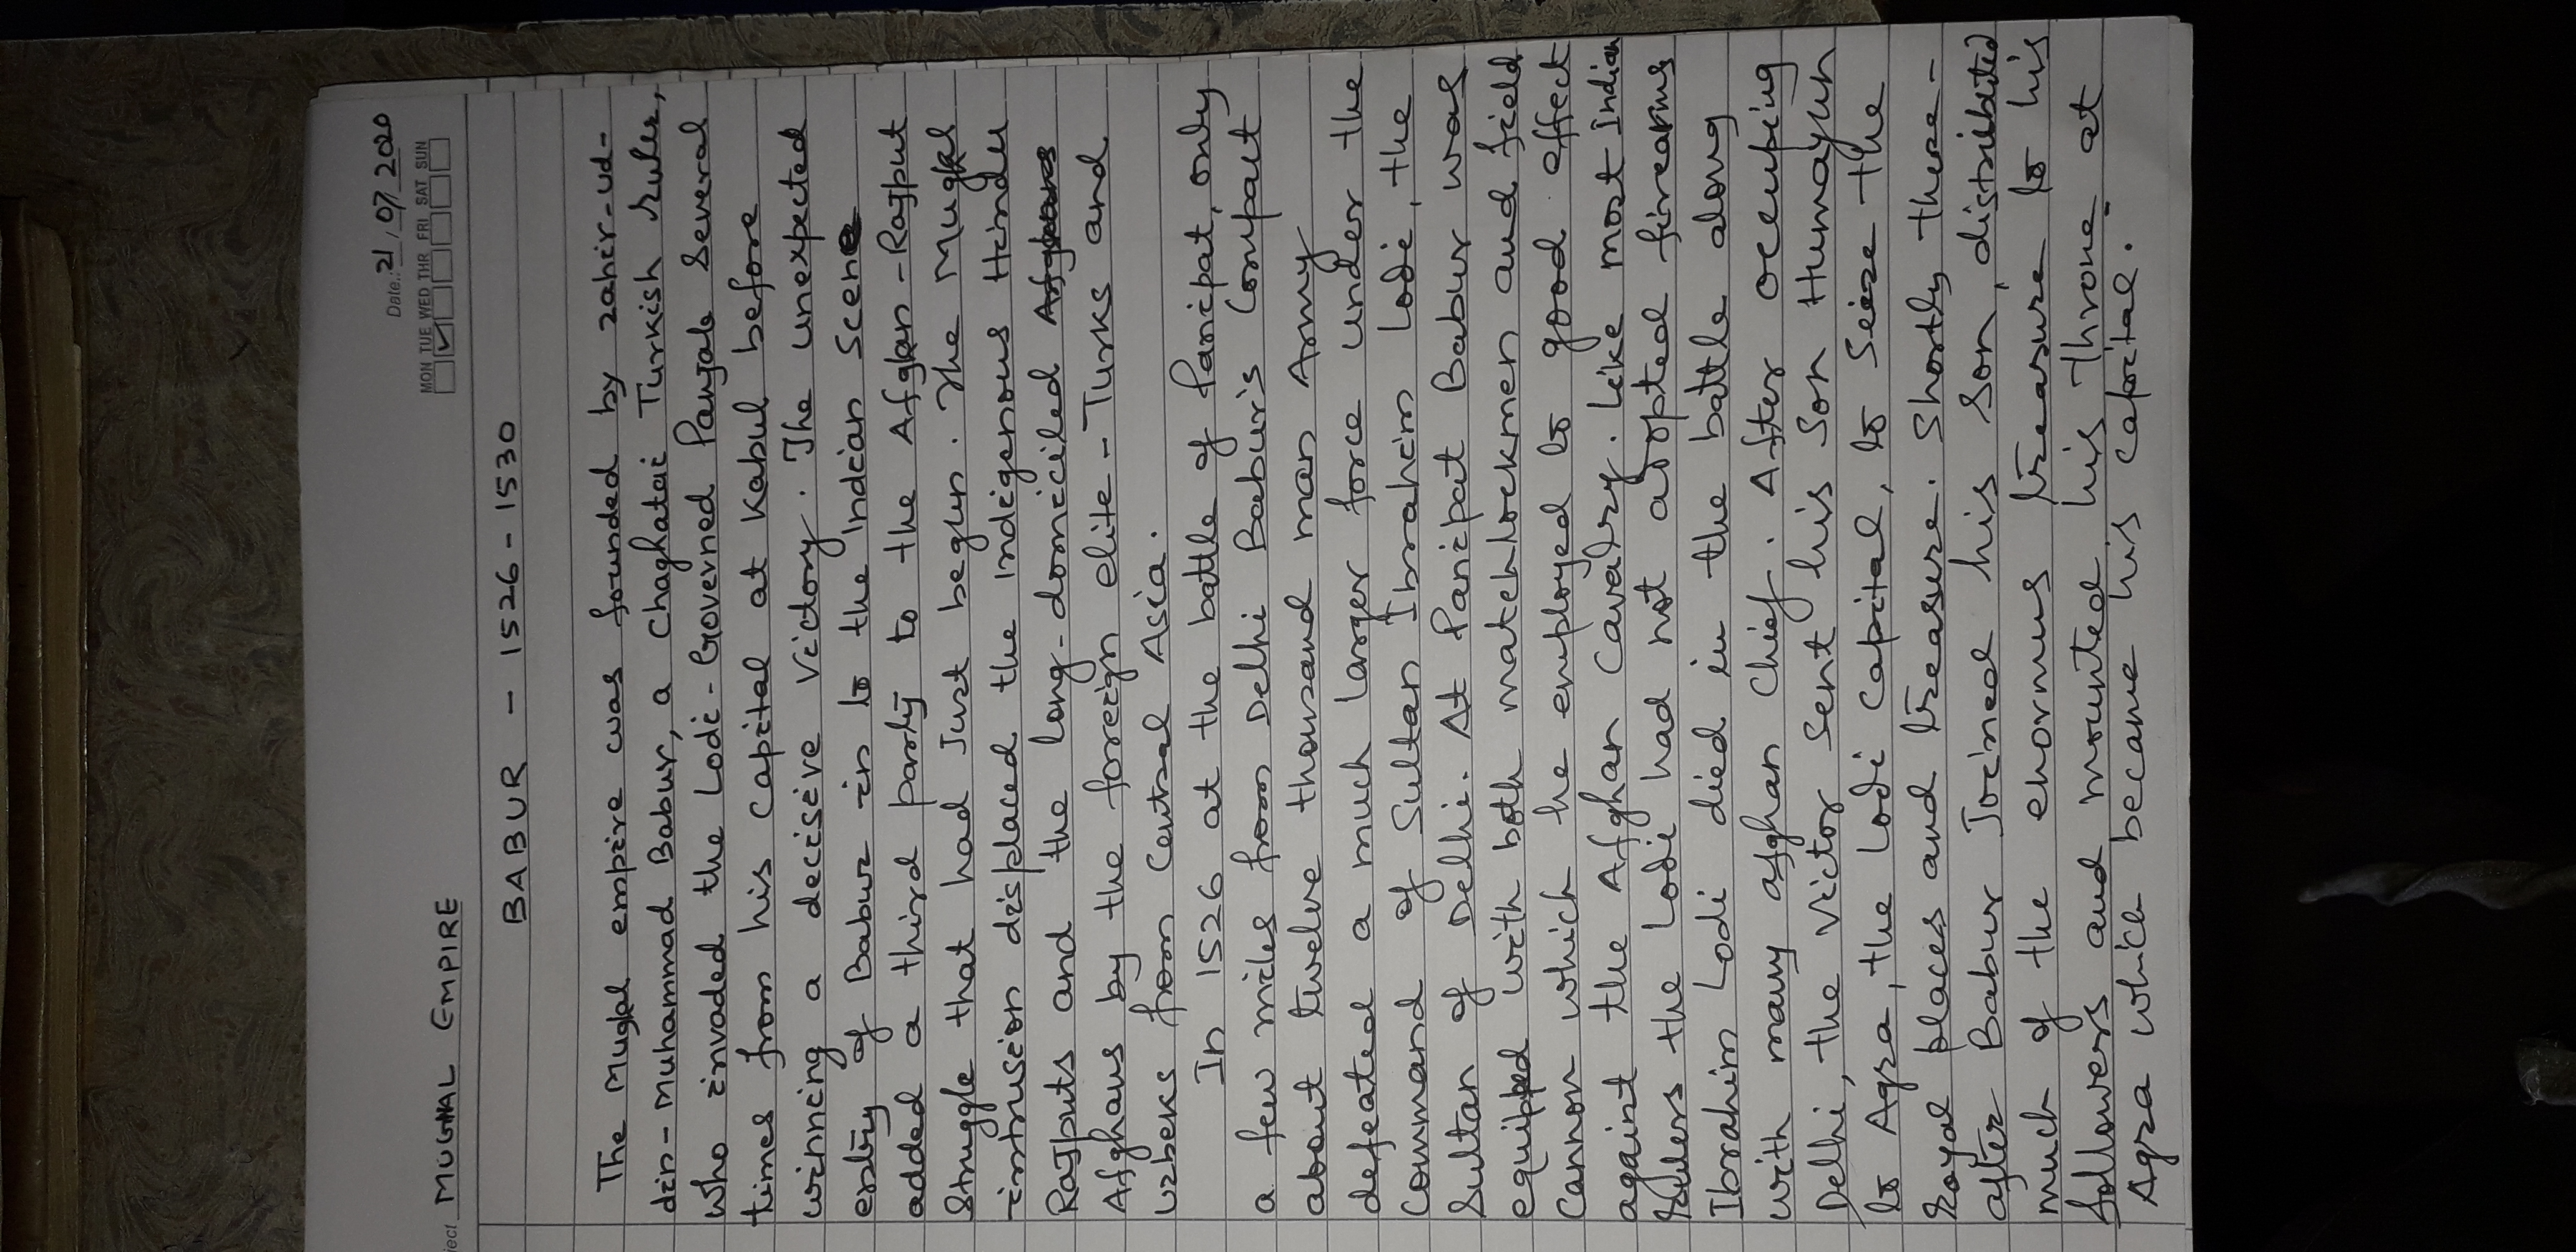 Date.: 21/07/2020
MON TUE WED THR FRI SAT SUN
ject MUGHAL EMPIRE
BABUR - 1526-1530
The Mughal empire was founded by zahir-ud-
din-Muhammad Babur, a Chaghatai Turkish ruler,
who invaded the Lodi-Governed Panjab Several
times from his capital at Kabul before
winning a decisive victory. The unexpected
entry of Babur in to the Indian Scene
added a third party to the Afghan-Rajput
Struggle that had Just begun. The Mughal
intrusion displaced the indigenous Hindu
Rajputs and the long-domiciled
Afghans by the foreign elite-Turks and
uzbeks from Central Asia.
In 1526 at the battle of Panipat, only
a few miles from Delhi Babur's Compact
about twelve thousand man Army
defeated a much larger force under the
Command of Sultan Ibrahim Lodi, the
Sultan of Delhi. At Panipat Babur was
equipped with both matchlockmen and field
Cannon which he employed to good effect
against the Afghan Cavalry. Like most Indian
rulers the Lodi had not adopted firearms
Ibrahim Lodi died in the battle along
with many afghan Chief. After occuping
Delhi, the victor sent his Son Humayun
to Agra, the Lodi Capital, to Seize the
royal places and treasure. Shortly there-
after Babur Joined his Son, distributed
much of the enormus treasure to his
followers and mounted his throne at
Agra which became his capital.